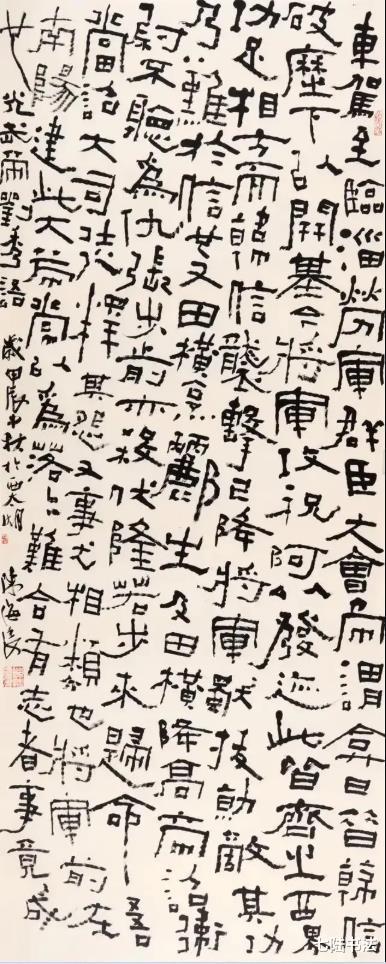 車駕至臨淄自勞軍群臣大會帝謂弇曰昔韓信
破歷下以開基今將軍攻祝阿以發迹此皆齊之西界
功足相方而韓信襲擊已降將軍獨拔勍敵其功
乃難於信也又田橫烹酈生及田橫降高帝詔衛
尉不聽為仇張步前亦殺伏隆若步來歸命吾
當詔大司徒釋其怨又事尤相類也將軍前在
南陽建此大策常以為落落難合有志者事竟成
也 光武帝劉秀語 歲甲辰中秋於西太湖 陳海良
七陆书法